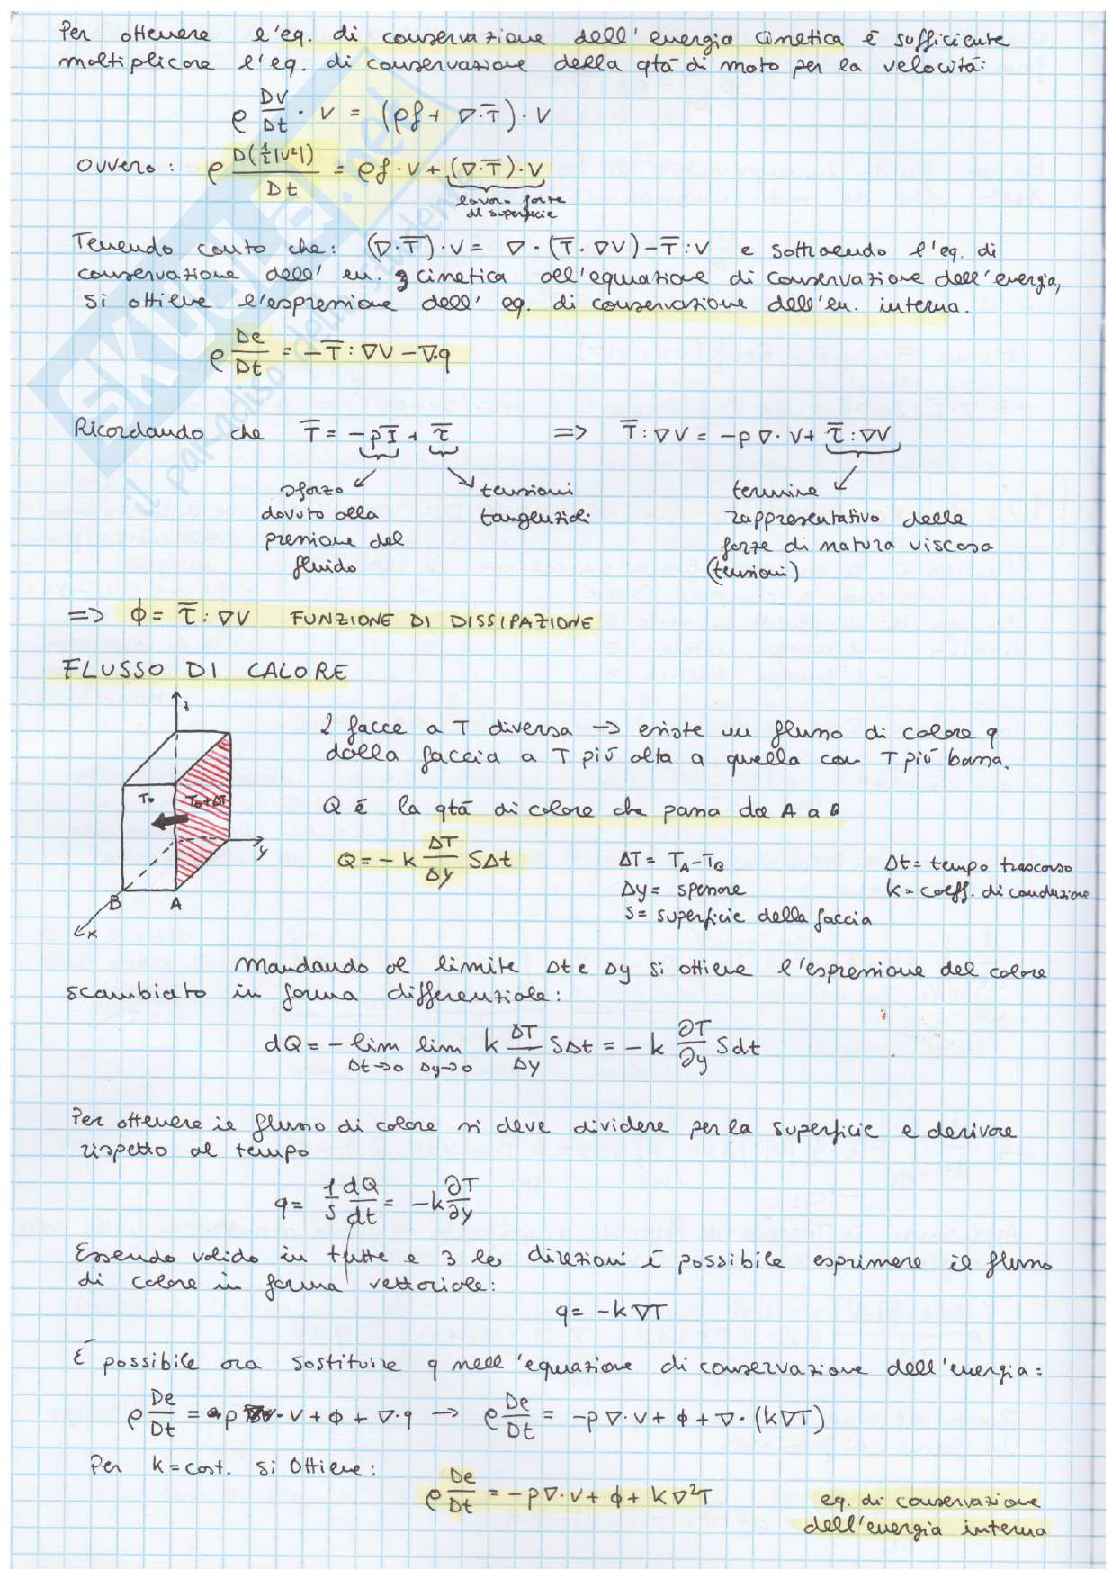 Per ottenere l'eq. di conservazione dell'energia cinetica è sufficiente
moltiplicare l'eq. di conservazione della qtà di moto per la velocità:
ρ DV/Dt · V = (ρf + ∇·T̄)·V
ovvero: ρ D(½|V²|)/Dt = ρf·V + (∇·T̄)·V
lavoro forze
di superficie
Tenendo conto che: (∇·T̄)·V = ∇·(T̄·∇V) − T̄:V e sottraendo l'eq. di
conservazione dell'en. cinetica all'equazione di conservazione dell'energia,
si ottiene l'espressione dell'eq. di conservazione dell'en. interna.
ρ De/Dt = −T̄:∇V − ∇·q
Ricordando che T̄ = −pĪ + τ̄ => T̄:∇V = −p∇·V + τ̄:∇V
sforzo dovuto alla pressione del fluido
tensioni tangenziali
termine rappresentativo delle forze di natura viscosa (tensioni)
=> ϕ = τ̄:∇V FUNZIONE DI DISSIPAZIONE
FLUSSO DI CALORE
z
T₀
T₀+ΔT
y
B A
x
2 facce a T diversa → esiste un flusso di calore q
dalla faccia a T più alta a quella con T più bassa.
Q è la qtà di calore che passa da A a B
Q = −k ΔT/Δy SΔt
ΔT = T_A − T_B
Δt = tempo trascorso
Δy = spessore
k = coeff. di conduzione
S = superficie della faccia
Mandando al limite Δt e Δy si ottiene l'espressione del calore
scambiato in forma differenziale:
dQ = − lim Δt→0 lim Δy→0 k ΔT/Δy SΔt = −k ∂T/∂y Sdt
Per ottenere il flusso di calore si deve dividere per la superficie e derivare
rispetto al tempo
q = 1/S dQ/dt = −k ∂T/∂y
Essendo valido in tutte e 3 le direzioni è possibile esprimere il flusso
di calore in forma vettoriale:
q = −k∇T
È possibile ora sostituire q nell'equazione di conservazione dell'energia:
ρ De/Dt = −p ∇·V + ϕ + ∇·q → ρ De/Dt = −p∇·V + ϕ + ∇·(k∇T)
Per k=cost. si ottiene:
ρ De/Dt = −p∇·V + ϕ + k∇²T
eq. di conservazione
dell'energia interna